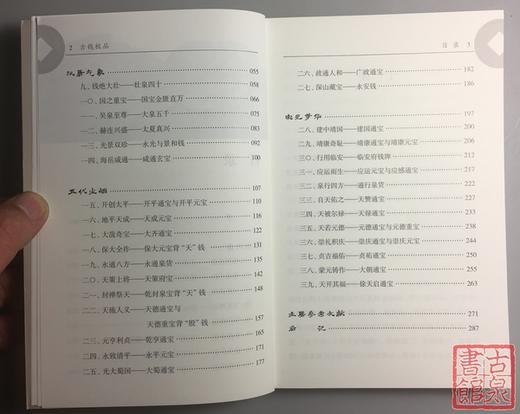 2 古钱极品
汉晋气象 055
九、钱绝大壮——壮泉四十
一〇、国之重宝——国宝金匮直万
一一、吴泉至尊——大泉五千
一二、赫连兴盛——太夏真兴
一三、光景双珍——永光与景和钱
一四、海岳咸通——咸通玄宝 100
五代火烟 107
一五、开创太平——开平通宝与开平元宝
一六、地平天成——天成元宝
一七、大哉奇宝——大齐通宝
一八、保大全作——保大元宝背“天”钱
一九、永通八方——永通泉货
二〇、天策上将——天策府宝
二一、封禅祭天——乾封泉宝背“天”钱
二二、天施人义——天德通宝与
天德重宝背“殷”钱 157
二三、元亨利贞——乾亨通宝 165
二四、永致清平——永平元宝 171
二五、光大蜀国——大蜀通宝 177
目录 3
二六、政通人和——广政通宝 182
二七、深山藏宝——永安钱 192
两宋梦华 197
二八、建中靖国——建国通宝
二九、靖康奇耻——靖康通宝与靖康元宝
三〇、行用临安——临安府钱牌
三一、应运而生——应运元宝与应感通宝
三二、泉行四方——通行泉货
三三、自天佑之——天赞通宝
三四、天被尔禄——天禄通宝
三五、天若元德——元德通宝与元德重宝
三六、崇礼积庆——崇庆通宝与崇庆元宝 244
三七、贞吉福佑——贞祐通宝
三八、蒙元铸作——大朝通宝
三九、天开其福——徐天启通宝 263
主要参考文献 271
后记 287
古泉書館